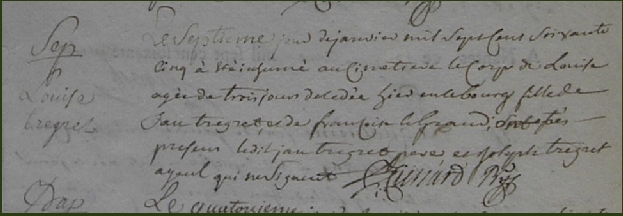 Sep
Louise
tregret
Le Septieme jour de janvier mil Sept Cens Soixante
Cinq à été inhumé au Cimetiere le Corp de Louise
agée de trois jours decedée hier en le bourg fille de
jan tregret et de francoise le grand, ont étés
presens ledit jan tregret pere et joseph tregret
ayeul qui ne Signent
Bap
Le quatorzieme